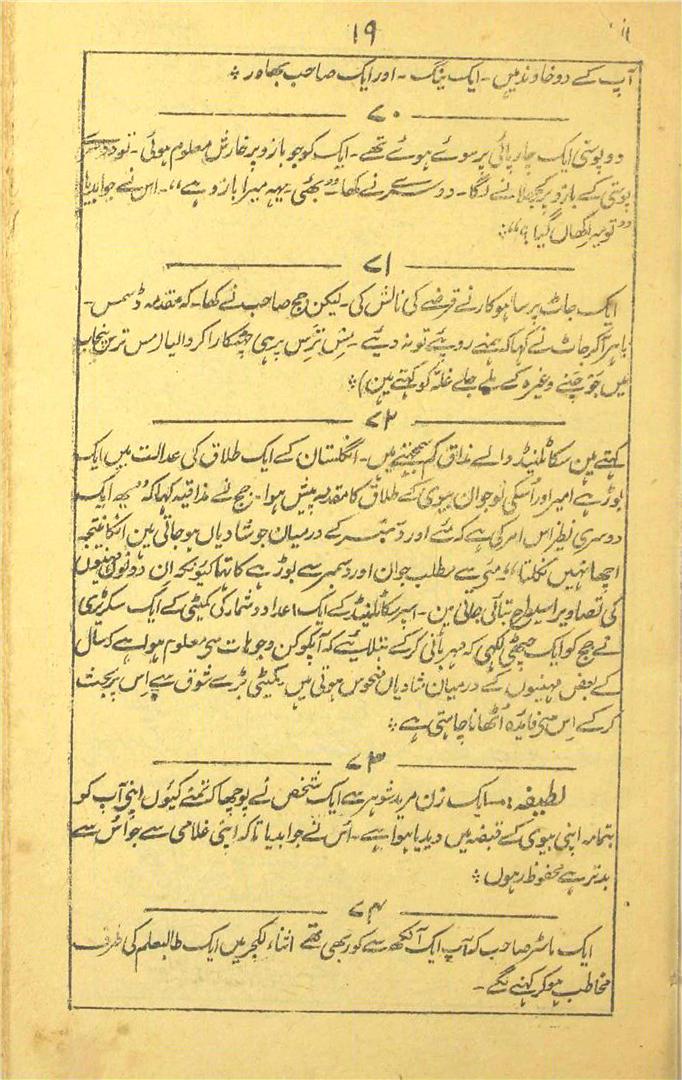 ۱۹
آپ کے دو خاوند ہیں - ایک ینگ - اور ایک صاحب بھادر ❖
۷۰
دو پوستی ایک چارپائی پر سوئے ہوئے تھے - ایک کو جو بازو پر خارش معلوم ہوئی - تو دوسرے
پوستی کے بازو پر کھجلانے لگا - دوسرے نے کھا - ’’بھئی - یہہ میرا بازو ہے‘‘ - اس نے جوابدیا
’’تو میرا کھاں گیا ؟‘‘ ❖
۷۱
ایک جاٹ پر ساہوکار نے قرضے کی نالش کی - لیکن جج صاحب نے کھا - کہ مقدمہ ڈسمس -
باہر آکر جاٹ نے کہا کہ ہمنے روپئے تو نہ دیئے - بس ترس پر ہی چھٹکارا کروالیا (مس ترس پنجاب
میں جَو چنے وغیرہ کے ملے جلے غلّہ کو کہتے ہین) ❖
۷۲
کہتے ہین سکاٹلینڈ والے مذاق کم سمجھتے ہیں - انگلستان کے ایک طلاق کی عدالت میں ایک
بوڑہے امیر اور اُسکی نوجوان بیوی کے طلاق کا مقدمہ پیش ہوا - جج نے مذاقیہ کہا کہ ’’یہہ ایک
دوسری نظیر اس امر کی ہے کہ مئے اور دسمبر کے درمیان جو شادیاں ہو جاتی ہین انکا نتیجہ
اچھا نہیں نکلتا‘‘ - مئی سے مطلب جوان اور دسمبر سے بوڑہے کا تہا کیونکہ ان دونوں مہینوں
کی تصاویر اسیطرح بتائی جاتی ہین - اسپر سکاٹلینڈ کے ایک اعداد و شمار کی کمیٹی کے ایک سکرٹیری
نے جج کو ایک چھٹی لکھی کہ مہربانی کرکے بتلایئے کہ آپکو کن وجوہات سے معلوم ہوا ہے کہ سال
کے بعض مہینوں کے درمیان شادیاں منحوس ہوتی ہیں یکمیٹی بڑے شوق سے اِس پر بحث
کرکے اِس سے فایدہ اُٹھانا چاہتی ہے ❖
۷۳
لطیفہ :- ایک زن مرید شوہر سے ایک شخص نے پوچھا کہ تمنے کیوں اپنی آپ کو
بتمامہ اپنی بیوی کے قبضہ میں دیدیا ہوا ہے - اُس نے جوابدیا تاکہ اپنی غلامی سے جو اُس سے
بدتر ہے محفوظ رہوں ❖
۷۴
ایک ماسٹر صاحب کہ آپ ایک آنکھ سے کور بھی تھے اثناء لکچر میں ایک طالبعلم کی طرف
مخاطب ہو کر کہنے لگے -